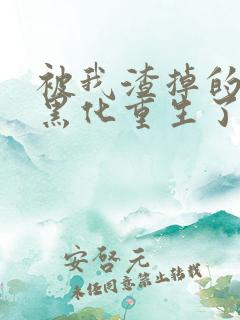 被我渣掉的
黑化重生了
安啓元
未经同意禁止转载